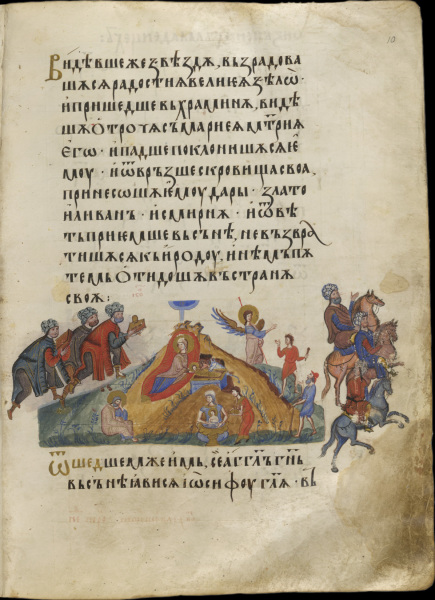 Видѣвше же ꙃвѣздѫ, възрадова
шѫсѧ радостиѫ велиеѫ ꙃѣлѡ ·
и пришедше въ храминѫ, видѣ
шѫ ѻтрочѧ съ мариеѫ мт҃риѫ
его · и падше поклонишѫсѧ е
моу · и ѿвръзше скровища своа,
принесѡшѫ емоу дары · злато
и ливанъ · и смирнѫ · и ѿвѣ
тъ приемше въ снѣ, не възвра
тишѫсѧ къ иродоу, и инѣмъ пѫ
темъ ѻтидошѫ въ странѫ
своѫ :
Ѿшедшем же имъ, се агг҃лъ гн҃ь
въ снѣ ꙗвисѧ іѡсифоу гл҃ѧ · въ